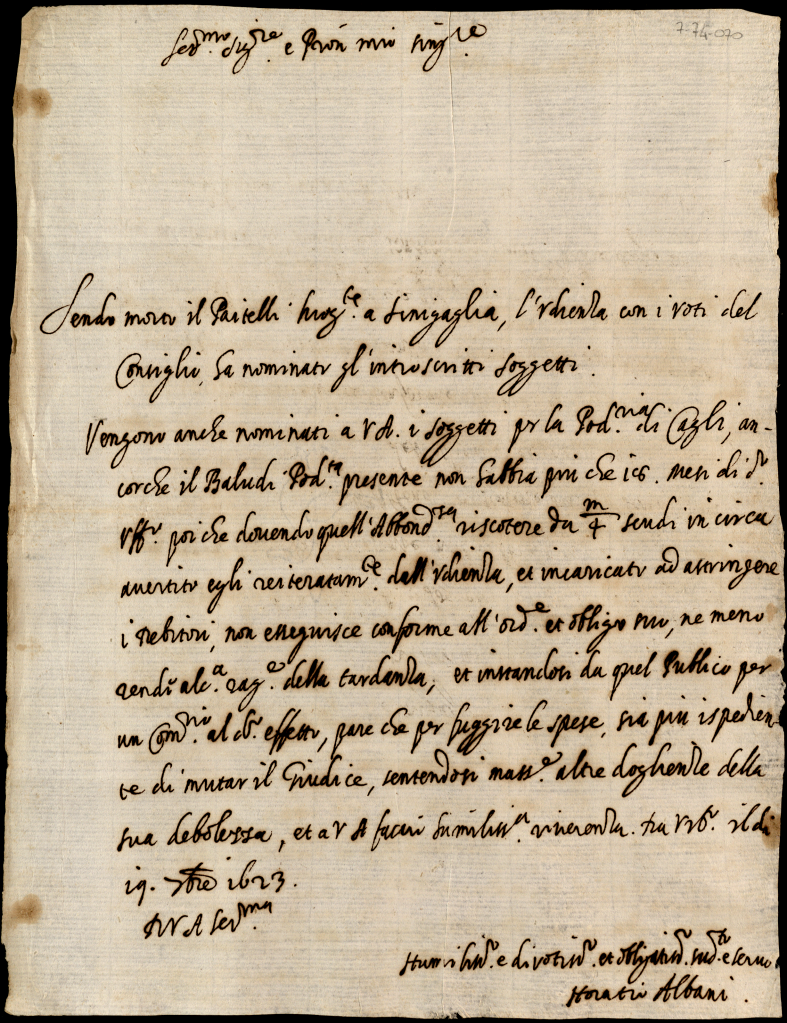 7-74-070
Ser.mo Sig.re e Pron mio sing.re
Sendo morto il Paitelli luog.te a Sinigaglia, l'Udienza con i voti del
Consiglio, ha nominato gl'introscritti soggetti.
Vengono anche nominati a V A. i soggetti per la Pod.ria di Cagli, an-
corche il Baludi Pod.tà presente non habbia più che i 6. mesi di d.o
uff.o poiche dovendo quell'Abbond.za riscotere da m/4 scudi in circa
avertito egli reiteratam.te dall'Udienza, et incaricato ad astringere
i debitori, non esseguisce conforme all'ord.e et obligo suo, ne meno
rende alc.a rag.e della tardanza, et instandosi da quel Publico per
un Com.rio al d.o effetto, pare che per fuggire le spese, sia più ispedien-
te di mutar il Giudice, sentendosi mass.e altre doglienze della
sua debolezza, et a V A faccio humiliss.a riverenza. Da Urb.o il dì
19. 7bre 1623.
Di V A Ser.ma
Humiliss.o e divotiss.o et obligatiss.o sud.to e servo
Horatio Albani.